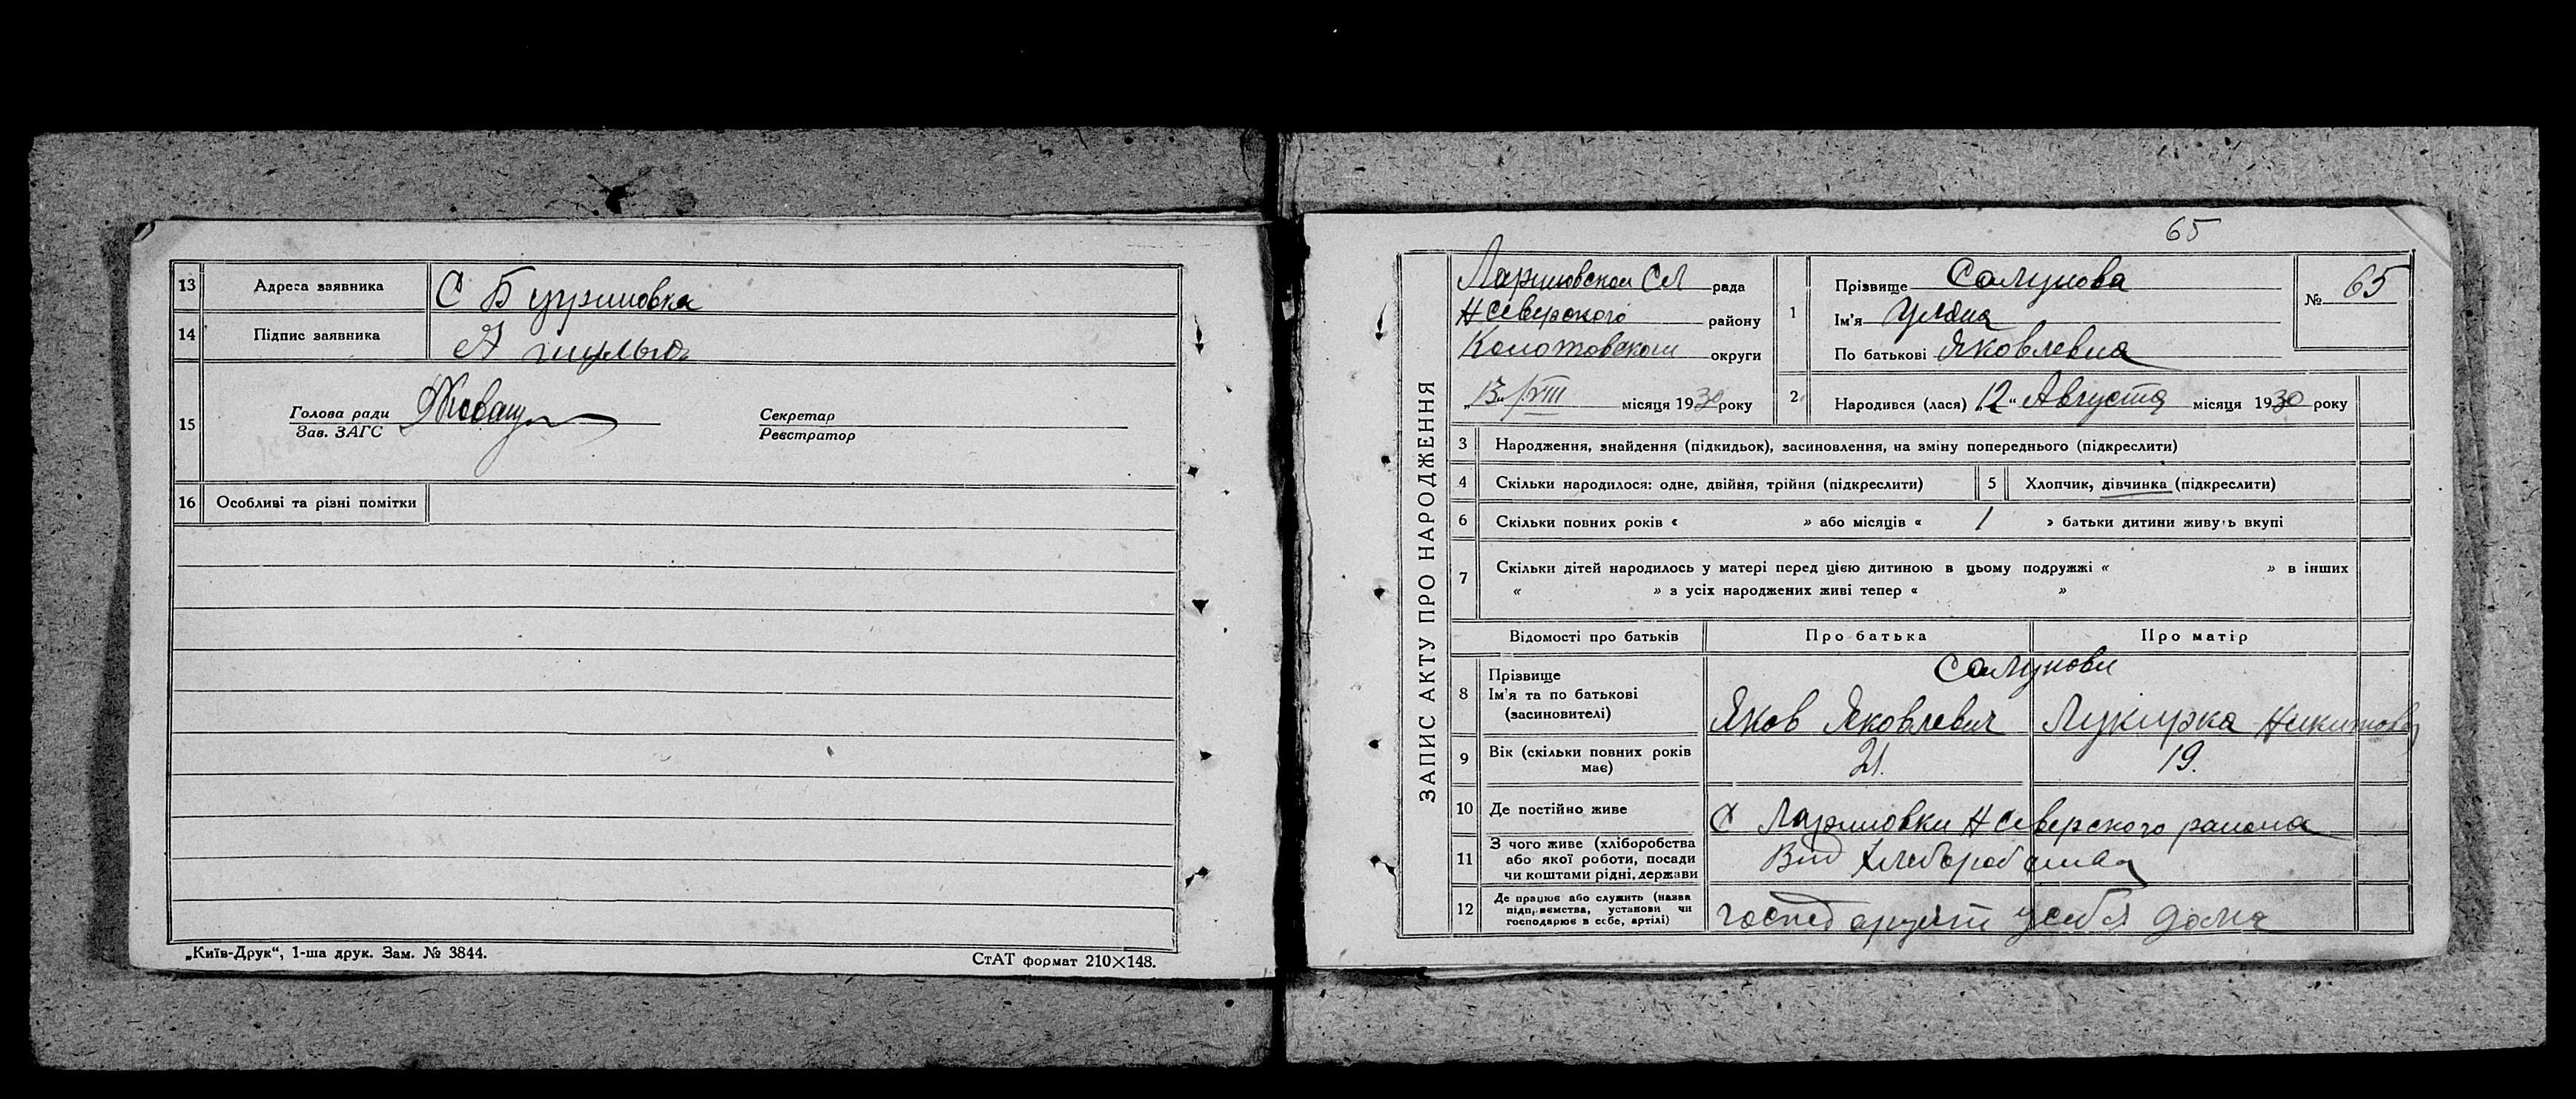 13 Адреса заявника С Буриновка
14 Підпис заявника
15 Голова ради Секретар
Зав. ЗАГС Реєстратор
16 Особливі та різні помітки
„Київ-Друк“, 1-ша друк. Зам. № 3844. СтАТ формат 210×148.
65
ЗАПИС АКТУ ПРО НАРОДЖЕННЯ
рада
Н Северского району
округи
„13“ VIII місяця 1930 року
1 Прізвище Салунова
Ім'я Уляна
По батькові Яковлевна
№ 65
2 Народився (лася) „12“ Августа місяця 1930 року
3 Народження, знайдення (підкидьок), засиновлення, на зміну попереднього (підкреслити)
4 Скільки народилося: одне, двійня, трійня (підкреслити) 5 Хлопчик, дівчинка (підкреслити)
6 Скільки повних років « » або місяців « 1 » батьки дитини живуть вкупі
7 Скільки дітей народилось у матері перед цією дитиною в цьому подружжі « » в інших
« » з усіх народжених живі тепер « »
Відомості про батьків Про батька Про матір
8 Прізвище Салунови
Ім'я та по батькові
(засиновителі) Яков Яковлевич Лукирка Никитовна
9 Вік (скільки повних років
має) 21. 19.
10 Де постійно живе С Н Северского района
11 З чого живе (хліборобства
або якої роботи, посади
чи коштами рідні, держави Вид
12 Де працює або служить (назва
підприємства, установи чи
господарює в себе, артілі) усебя дома